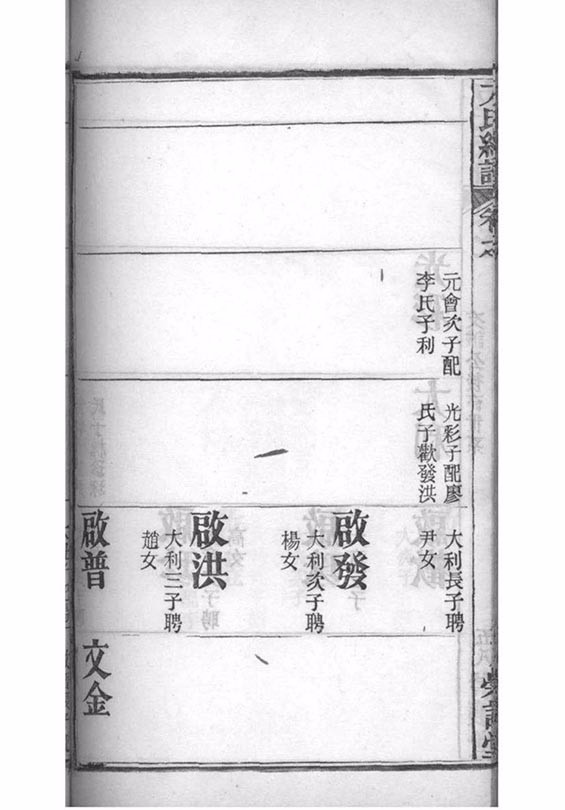 氏
卷
元會次子配
李氏子利
光彩子配廖
氏子歡發洪
大利長子聘
尹女
啟發
大利次子聘
楊女
啟洪
大利三子聘
趙女
啟普
文金